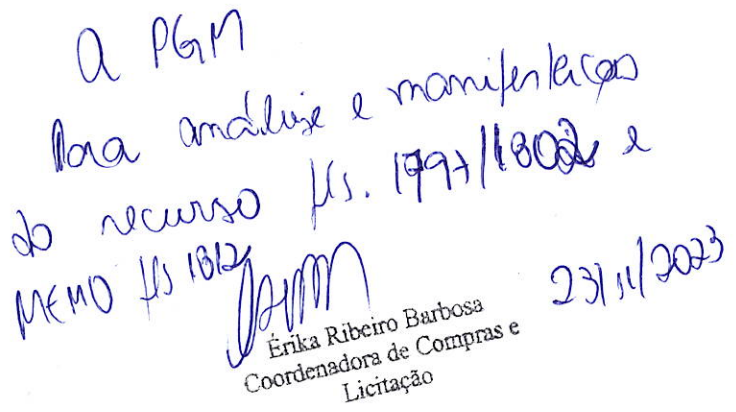 A PGM
Para análise e manifestação
do recurso fls. 1797/1802 e
MEMO fls 1812
23/11/2023
Érika Ribeiro Barbosa
Coordenadora de Compras e
Licitação